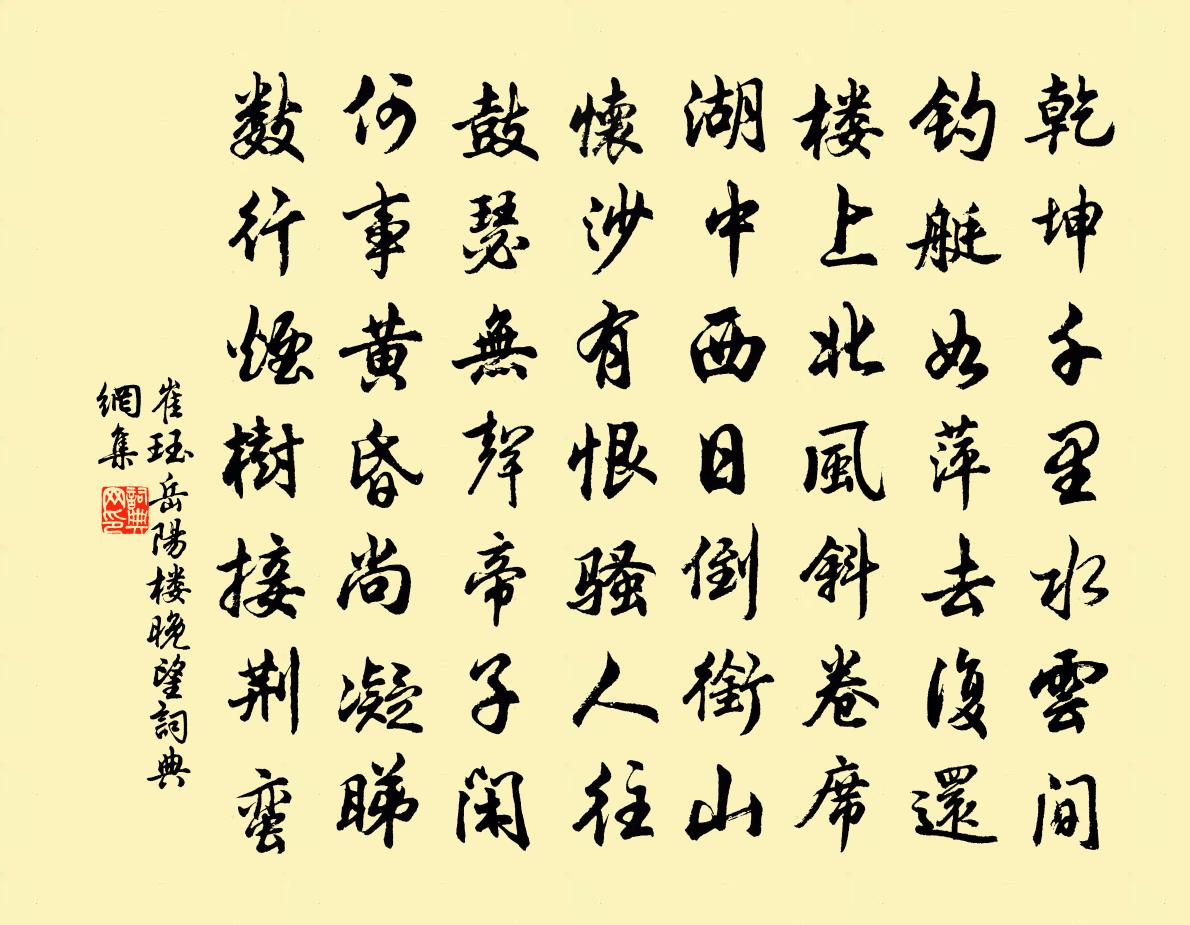 乾坤千里水雲間
釣艇如萍去復還
楼上北風斜卷席
湖中西日倒銜山
懷沙有恨騷人往
鼓瑟無聲帝子閑
何事黃昏尚凝睇
数行煙樹接荆蠻
崔珏岳陽楼晚望詞典
網集
詞典
网印